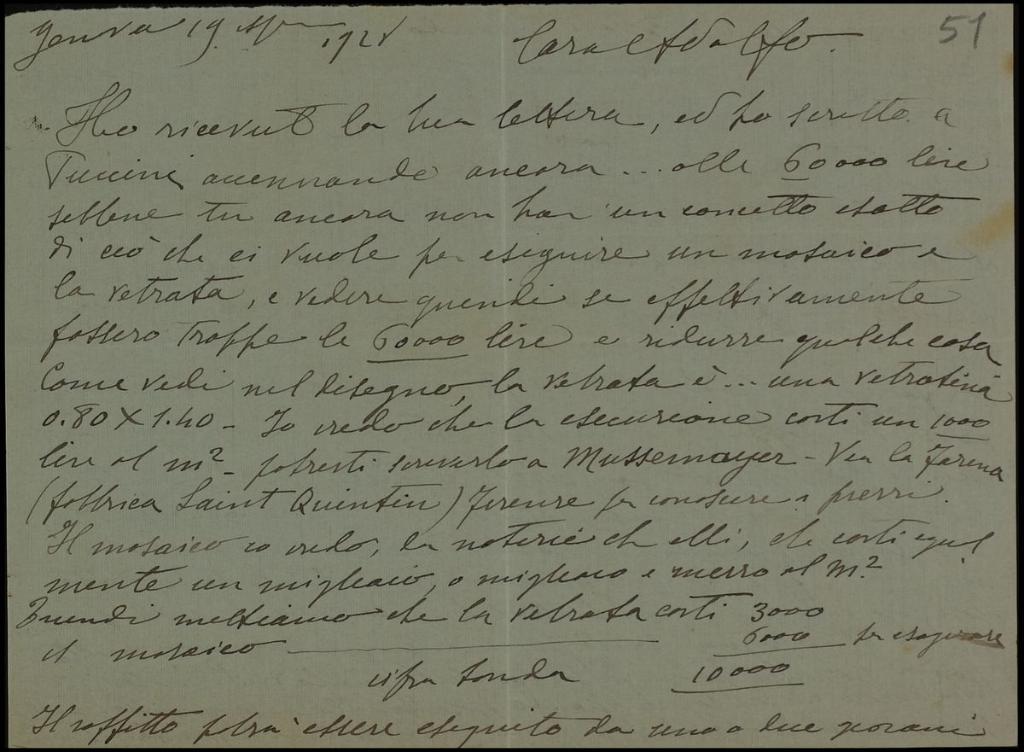 Genova 19 1921 Caro Adolfo. 51
Ho ricevuto la tua lettera, ed ho scritto a
Puccini accennando ancora ... alle 60000 lire
sebbene tu ancora non hai un concetto esatto
di ciò che ci vuole per eseguire un mosaico e
la vetrata, e vedere quindi se effettivamente
fossero troppe le 60000 lire e ridurre qualche cosa
Come vedi nel disegno, la vetrata è ... una vetratina
0.80 X 1.40 - Io credo che la esecuzione costi un 1000
lire al m² - potresti scriverlo a Mussemayer - Via la Farina
(fabbrica Saint Quintin) Firenze per conoscere i prezzi.
Il mosaico io credo, da notizie che ebbi, che costi egual
mente un migliaio, o migliaio e mezzo al m².
Quindi mettiamo che la vetrata costi 3000
il mosaico 6000 per esagerare
cifra tonda 10000
Il soffitto potrà essere eseguito da uno o due giovani